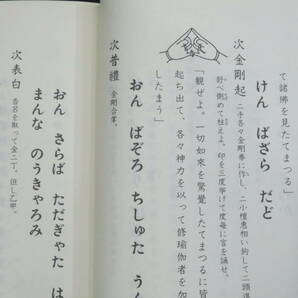 て諸佛を見たてまつる」
けん ばざら だど
次金剛起 二手各々金剛拳に作し、二小檀慧相い鉤して二頭
舒べ側めて拄えよ。印を三度挙げて度毎に言を誦せ。
「観ぜよ。一切如来を驚覺したてまつるに皆
起ち出て、各々神力を以って修瑜伽者を加
したまう」
おん ばぞろ ちしゅた うん
次普禮 金剛合掌。
おん さらば ただぎゃた は
まんな のうきゃろみ
次表白 香呂を取って金二丁。但し乙甲。